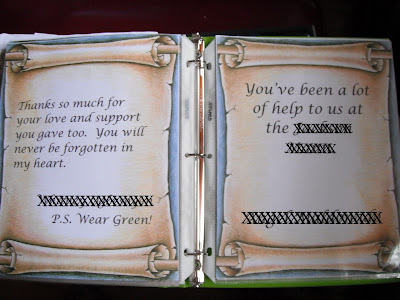 Thanks so much for
your love and support
you gave too. You will
never be forgotten in
my heart.
P.S. Wear Green!
You've been a lot
of help to us at
the